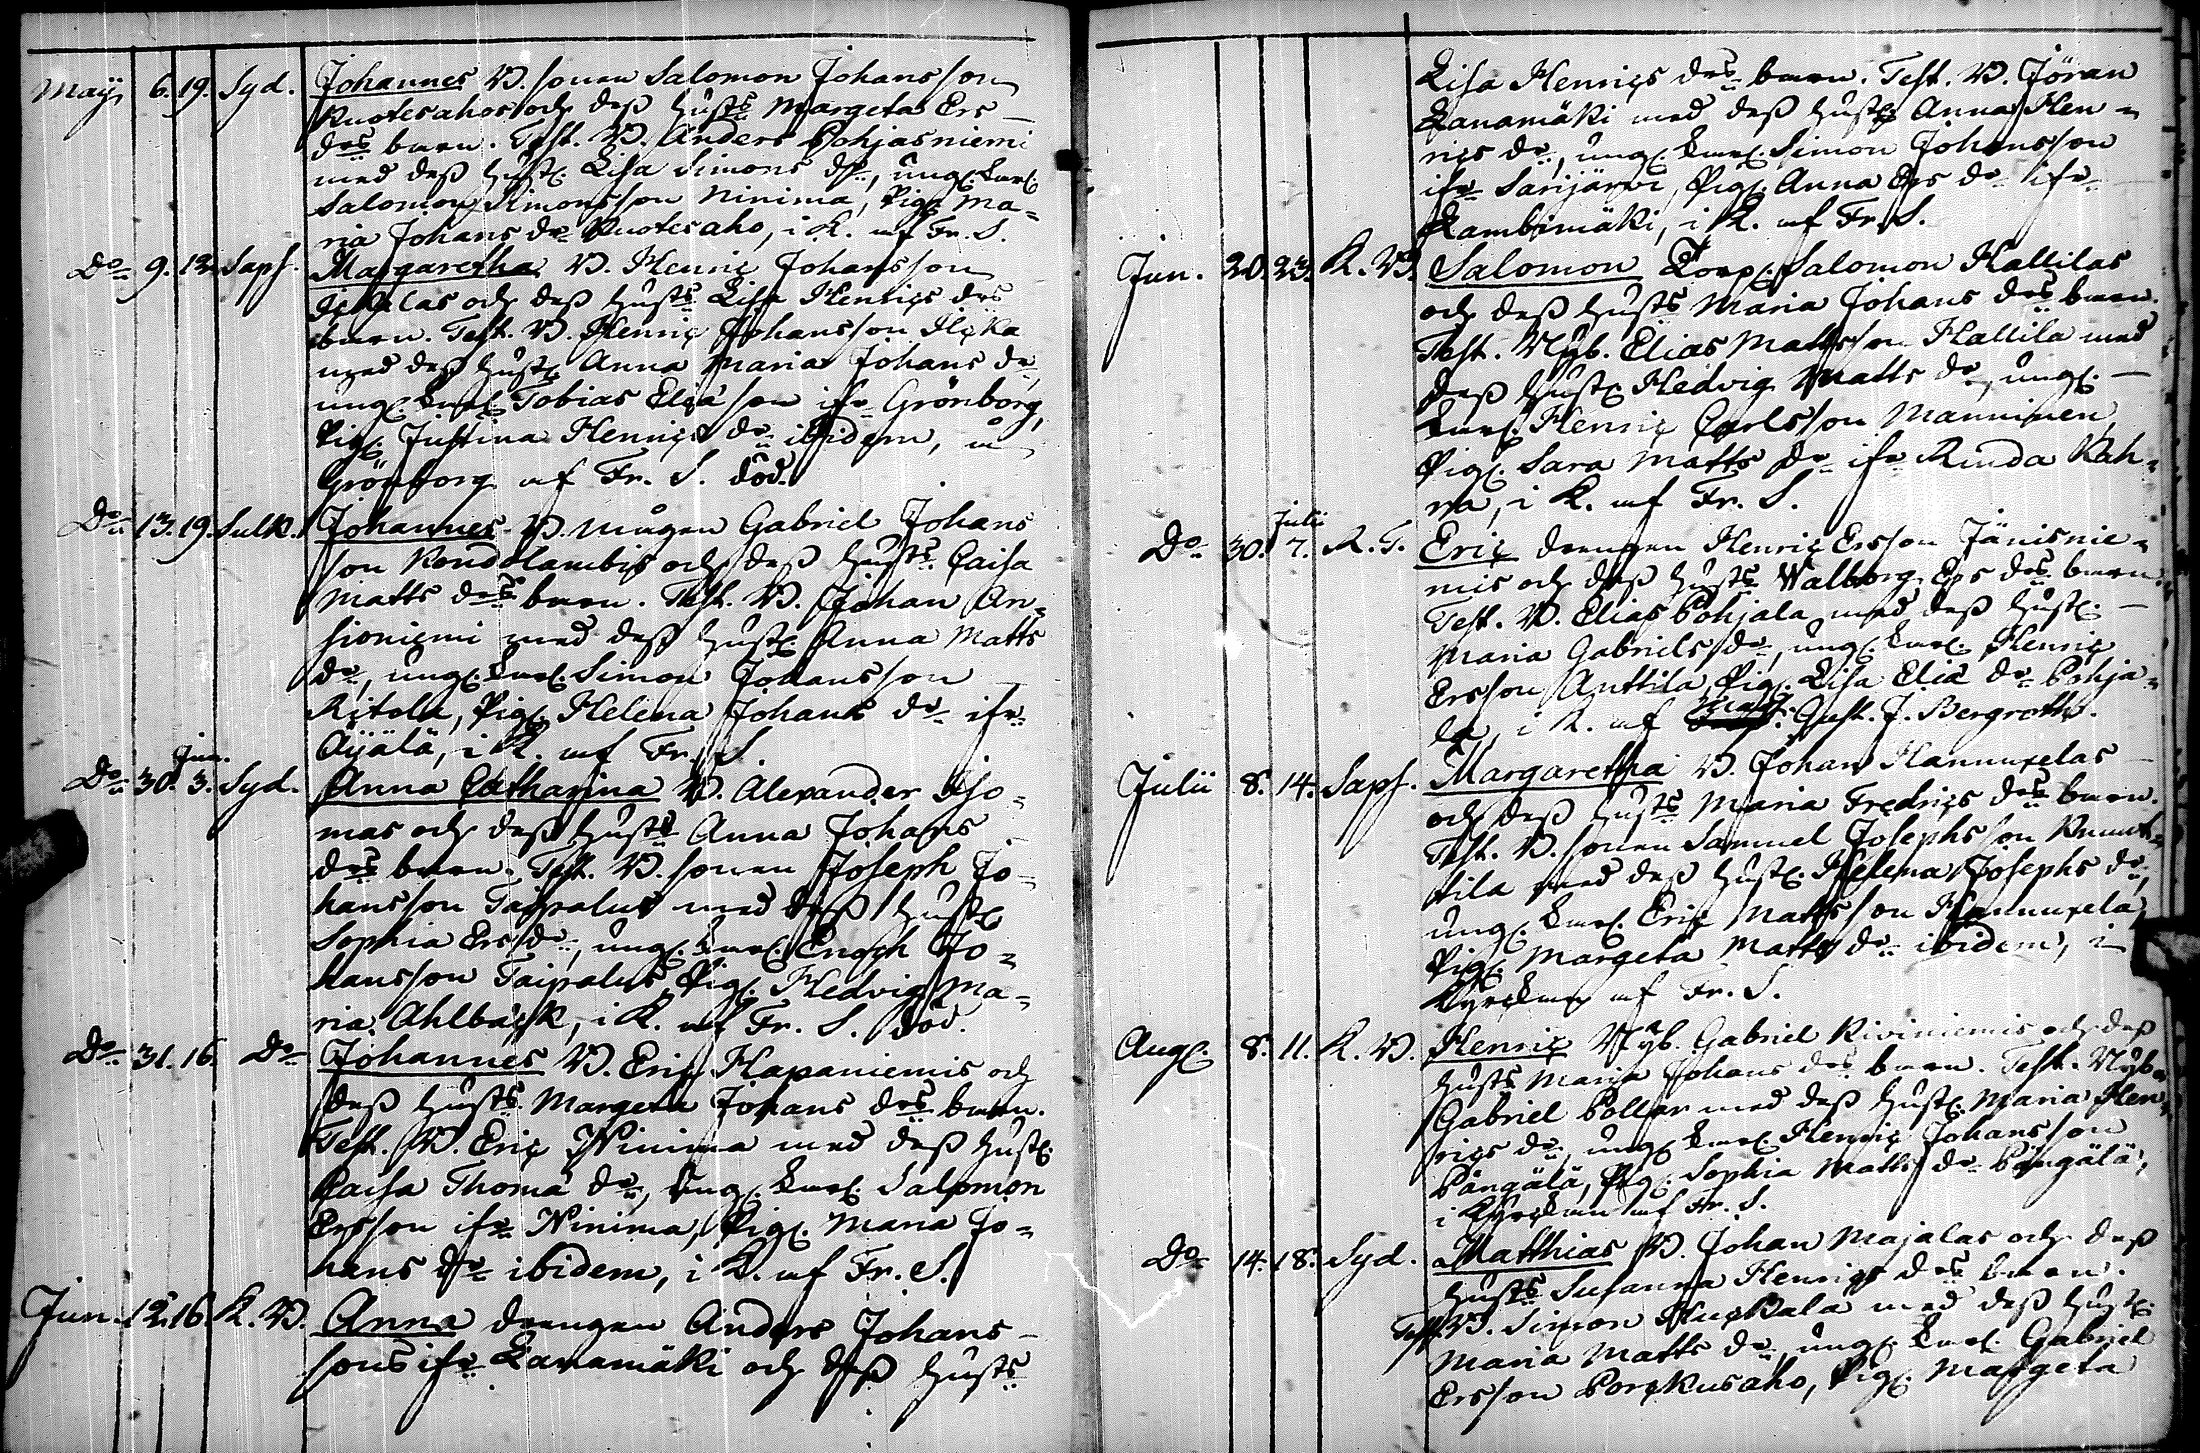 Maÿ 6. 19. Syd. Johannes B. sonen Salomon Johansson
Ruotesahos och dess hust:s Margeta Ers
drs barn. Test. B. Anders Pohjasniemi
med dess hust. Lisa Simons dr, ung. karl.
Salomon Simonsson Ninima, Pig. Ma=
ria Johans dr Ruotesaho, i K. af Fr. S.
Do 9. 12. Saps. Margaretha B. Henric Johansson
och dess husts Lisa Henrics drs
barn. Test. B. Henric Johansson
med dess hust. Anna Maria Johans dr,
ung. karl. Tobias Eliæ son ifr. Grönborg,
Pig. Justina Henrics dr ibidem, i
Grönborg af Fr. S. död.
Do 13. 19. Sulk. Johannes B. mågen Gabriel Johans
son och dess husts Caisa
Matts drs barn. Test. B. Johan An=
sioniemi med dess hust. Anna Matts
dr, ung. karl. Simon Johansson
Ritola, Pig. Helena Johans dr ifr.
Aÿälä, i K. af Fr. S.
Jun.
Do 30. 3. Syd. Anna Catharina B. Alexander
mas och dess husts Anna Johans
drs barn. Test. B. sonen Joseph Jo=
hansson Taipalus med dess hust.
Sophia Ers dr, ung. karl. Enoch Jo=
hansson Taipalus, Pig. Hedvig Ma=
ria Ahlbäck, i K. af Fr. S. död.
Do 31. 16. Do Johannes B. Eric Hapaniemis och
dess husts Margeta Johans drs barn.
Test. B. Eric Ninima med dess hust.
Caisa Thomæ dr, ung. karl. Salomon
Ersson ifr. Ninima, Pig. Maria Jo=
hans dr ibidem, i K. af Fr. S.
Jun. 12. 16. K. B. Anna drengen Anders Johans
sons ifr. Lanamäki och dess husts
Lisa Henrics drs barn. Test. B. Jöran
Lanamäki med dess hust. Anna Hen=
rics dr, ung. karl. Simon Johansson
ifr. Sarijärvi, Pig. Anna Ers dr ifr.
Kambimäki, i K. af Fr. S.
Jun. 20. 23. K. B. Salomon Torp. Salomon Hallilas
och dess husts Maria Johans drs barn.
Test. Nÿb. Elias Mattsson Hallila med
dess hust. Hedvig Matts dr, ung.
karl. Henric Carlsson Manninen,
Pig. Sara Matts dr ifr. Runda Kah=
ra, i K. af Fr. S.
Julii
Do 30. 7. K. T. Eric drengen Henric Ersson Jänisnie=
mis och dess husts Walborg Ers drs barn.
Test. B. Elias Pohjala med dess hust.
Maria Gabriels dr, ung. karl. Henric
Ersson Anttila, Pig. Lisa Eliæ dr Pohja=
la, i K. af Gust. J. Bergroth.
Julii 8. 14. Saps. Margaretha B. Johan Hannuxelas
och dess husts Maria Fredrics drs barn.
Test. B. sonen Samuel Josephsson
tila med dess hust. Helena Josephs dr,
ung. karl. Eric Mattsson Hannuxela,
Pig. Margeta Matts dr ibidem, i
Kyrckan af Fr. S.
Aug. 8. 11. K. B. Henric Nÿb. Gabriel Riviniemis och dess
husts Maria Johans drs barn. Test. Nÿb.
Gabriel Pollar med dess hust. Maria Hen=
rics dr, ung. karl. Henric Johansson
Pängälä, Pig. Sophia Matts dr Pängälä,
i Kyrckan af Fr. S.
Do 14. 18. Syd. Matthias B. Johan Majalas och dess
husts Susanna Henrics drs barn.
Test. B. Simon Huckala med dess hust.
Maria Matts dr, ung. karl. Gabriel
Ersson Porckusaho, Pig. Margeta